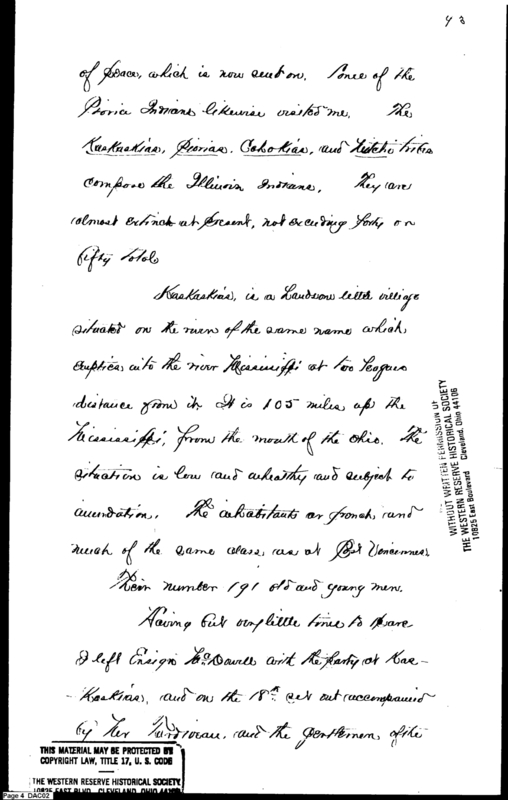 43
of peace, which is now sent on. Some of the
Pioria Indians likewise visited me. The
Kaskaskias, Piorias, Cohokias, and tribes
compose the Illinois Indians, They are
almost extinct at present, not exceeding forty or
fifty total
Kaskaskias, is a handsome little village
situated on the river of the same name which
empties into the river Mississippi at two leagues
distance from it. It is 105 miles up the
Mississippi, from the mouth of the Ohio. The
situation is low and unhealthy and subject to
inundation. The inhabitants are french and
much of the same class, as at Post Vincennes.
Their number 191 old and young men.
Having but very little time to spare
I left Ensign McDowell with the party at Kas-
-Kaskias, and on the 18th set out accompanied
by and the gentlemen of the
WITHOUT WRITTEN PERMISSION OF
THE WESTERN RESERVE HISTORICAL SOCIETY
10825 East Boulevard Cleveland, Ohio 44106
THIS MATERIAL MAY BE PROTECTED BY
COPYRIGHT LAW, TITLE 17, U. S. CODE
THE WESTERN RESERVE HISTORICAL SOCIETY
10825 EAST BLVD. CLEVELAND, OHIO 44106
Page 4 DAC02